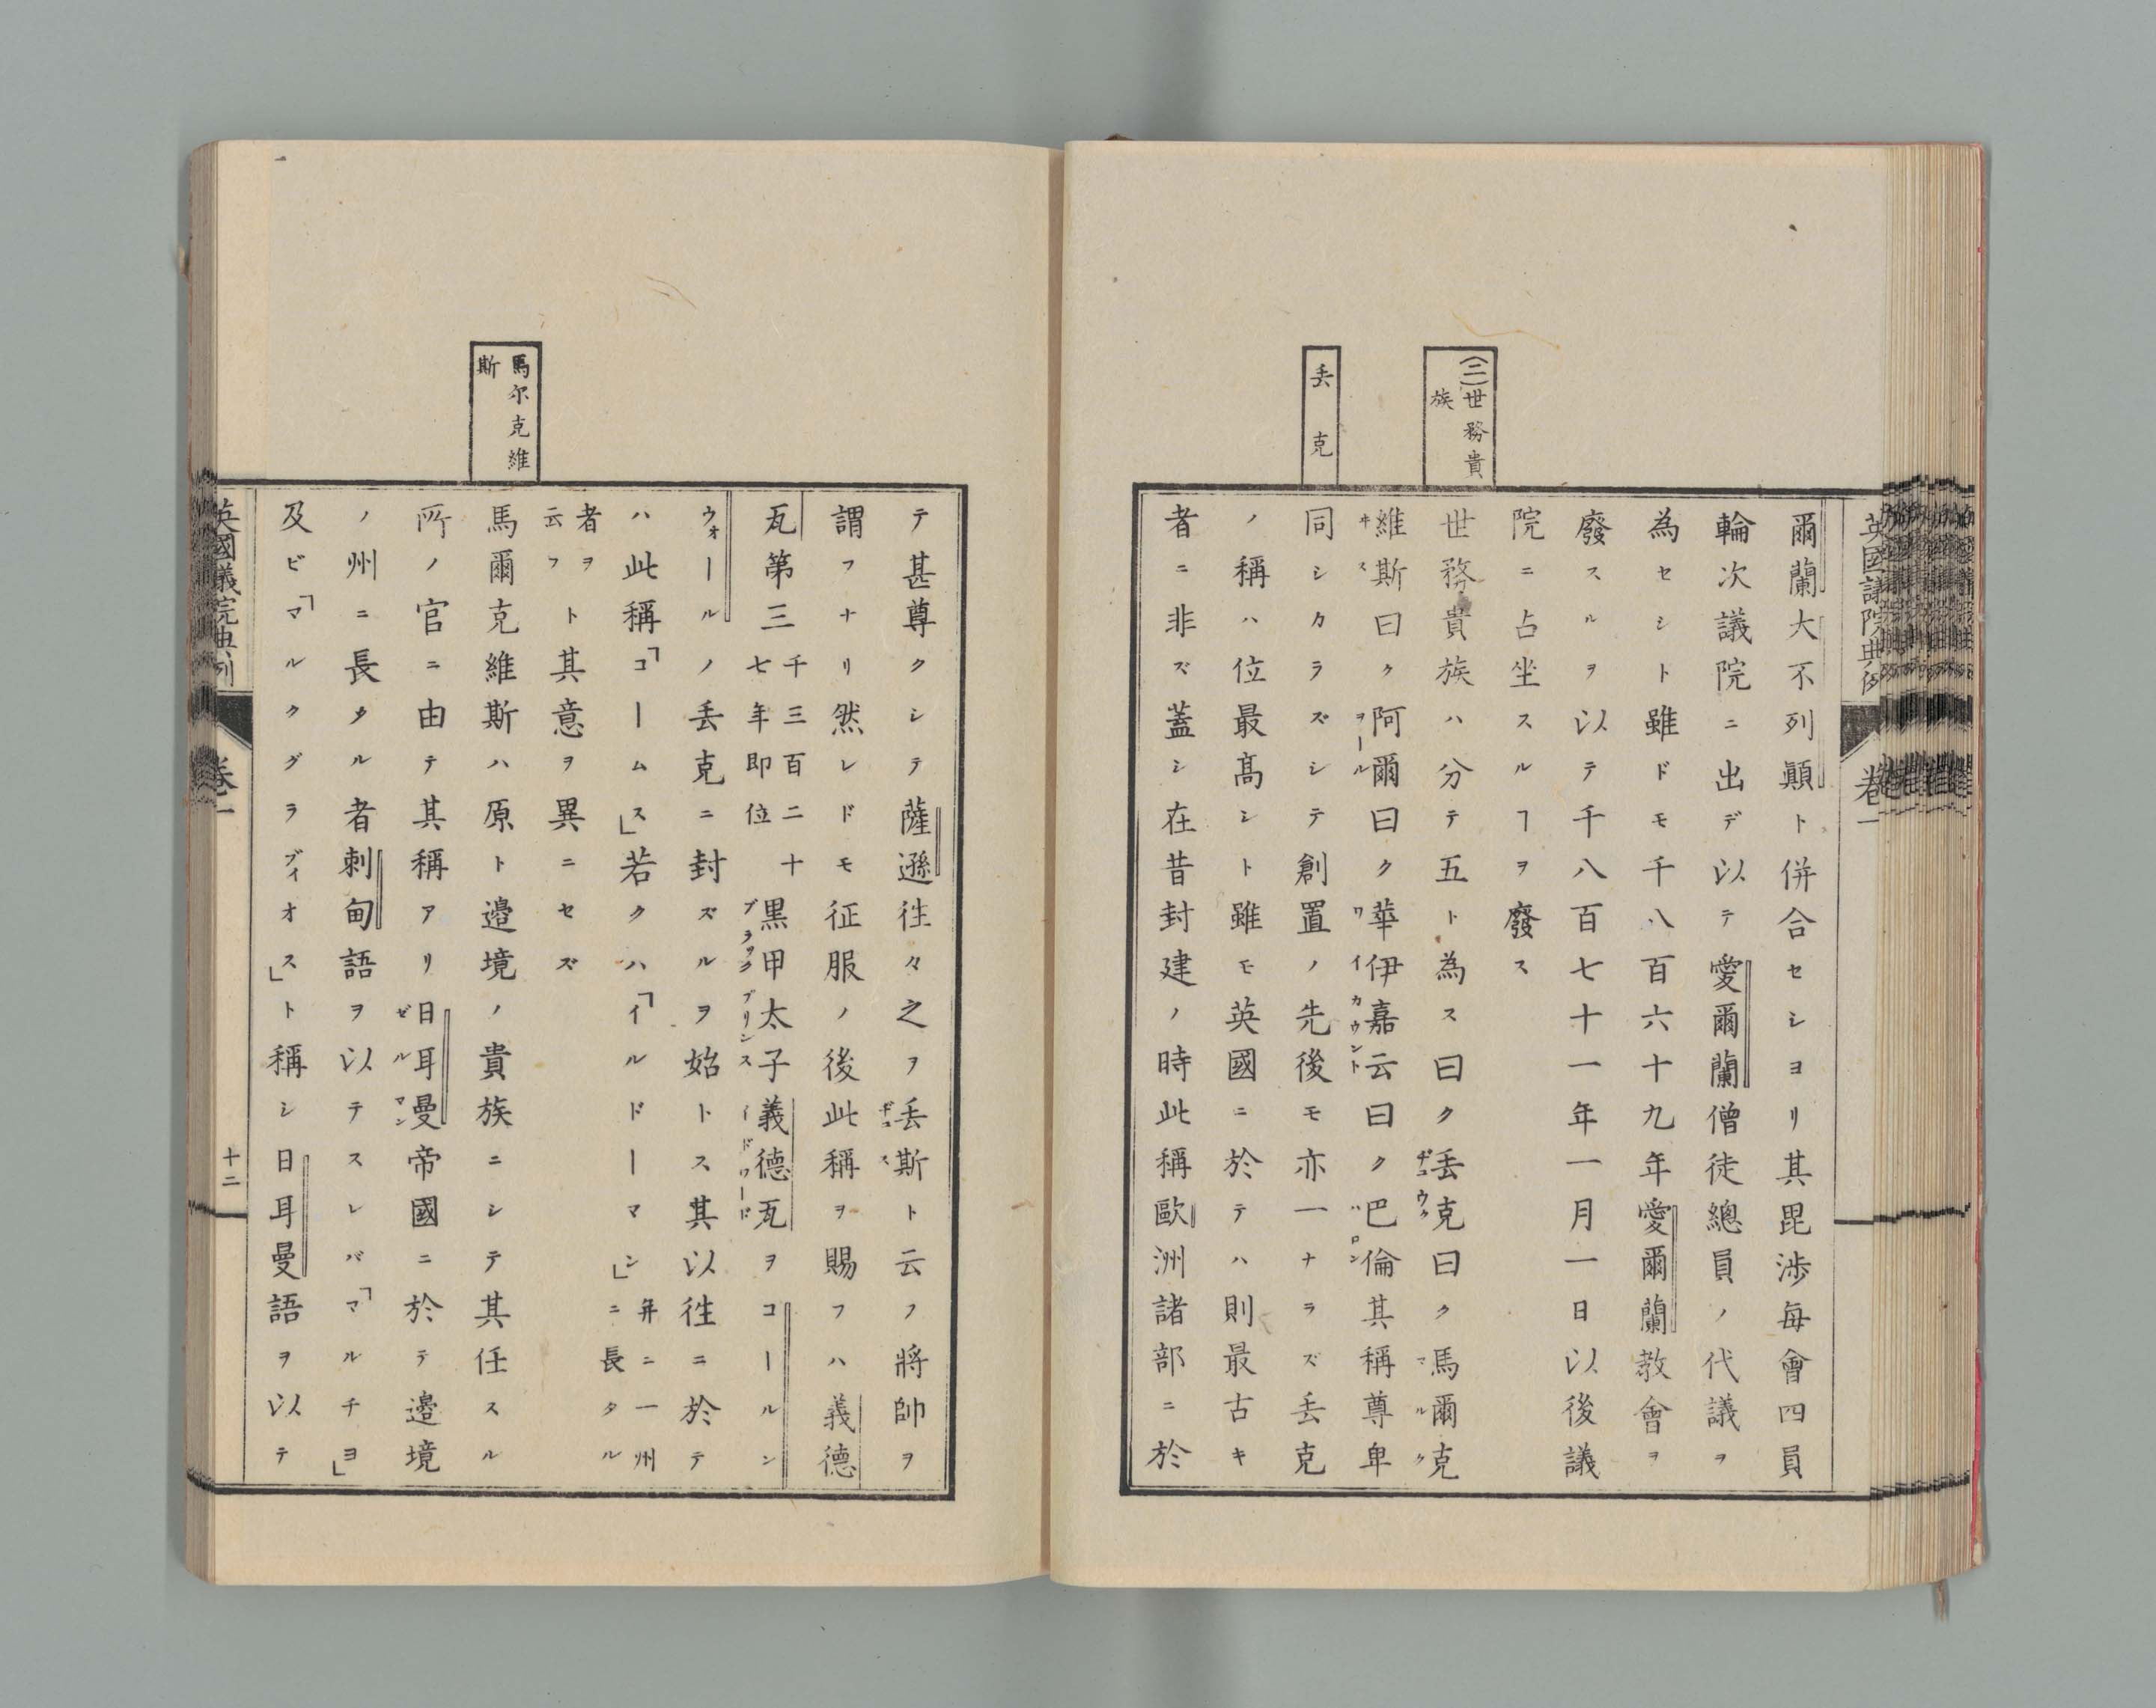 英國議院典例
卷一
(二)世務貴
族
丢克
爾蘭大不列顛ト併合セシヨリ其毘渉每會四員
輪次議院ニ出デ以テ愛爾蘭僧徒總員ノ代議ヲ
為セシト雖ドモ千八百六十九年愛爾蘭教會ヲ
廢スルヲ以テ千八百七十一年一月一日以後議
院ニ占坐スルヿヲ廢ス
世務貴族ハ分テ五ト為ス曰ク丢克曰ク馬爾克
ヂユウク
マルク
維斯曰ク阿爾曰ク華伊嘉云曰ク巴倫其稱尊卑
キス
ヲール
ワイカウント
バロン
同シカラズシテ創置ノ先後モ亦一ナラズ丢克
ノ稱ハ位最髙シト雖モ英國ニ於テハ則最古キ
者ニ非ズ蓋シ在昔封建ノ時此稱歐洲諸部ニ於
馬尔克維
斯
テ甚尊クシテ薩遜徃々之ヲ丢斯ト云フ將帥ヲ
ヂユス
謂フナリ然レドモ征服ノ後此稱ヲ賜フハ義德
瓦第三
千三百二十
七年即位
黒甲太子義德瓦ヲコールン
ブラック
プリンス
イドワード
ウォールノ丢克ニ封ズルヲ始トス其以徃ニ於テ
ハ此稱「コームス」若クハ「イルドーマン」
幷ニ一州
ニ長タル
者ヲ
云フ
ト其意ヲ異ニセズ
馬爾克維斯ハ原ト邉境ノ貴族ニシテ其任スル
所ノ官ニ由テ其稱アリ日耳曼帝國ニ於テ邉境
ゼルマン
ノ州ニ長タル者剌甸語ヲ以テスレバ「マルチヨ」
及ビ「マルクグラブイオス」ト稱シ日耳曼語ヲ以テ
英國議院典例
卷一
十二